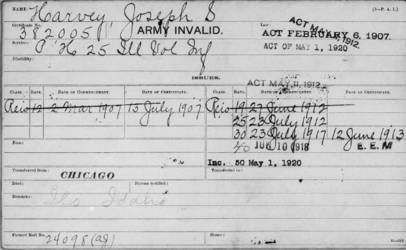 NAME Harvey, Joseph S
Certificate No. 382005 ARMY INVALID. ACT MAY 11, 1912.
ACT FEBRUARY 6, 1907.
H 25 Ill Vol Inf
ACT OF MAY 1, 1920
Disability:
ISSUES.
ACT MAY 11, 1912.
CLASS. RATE. DATE OF COMMENCEMENT. DATE OF CERTIFICATE. CLASS. RATE. DATE OF COMMENCEMENT. DATE OF CERTIFICATE.
12 2 Mar 1907 15 July 1907 19 27 June 1912
25 23 July 1912
30 23 July 1917 12 June 1913
40 JUN 10 1918 E. E. M
From: Inc. 50 May 1, 1920
Transferred from CHICAGO Transferred to:
Died: Bureau notified:
Remarks: Idaho
Former Roll No. 24098